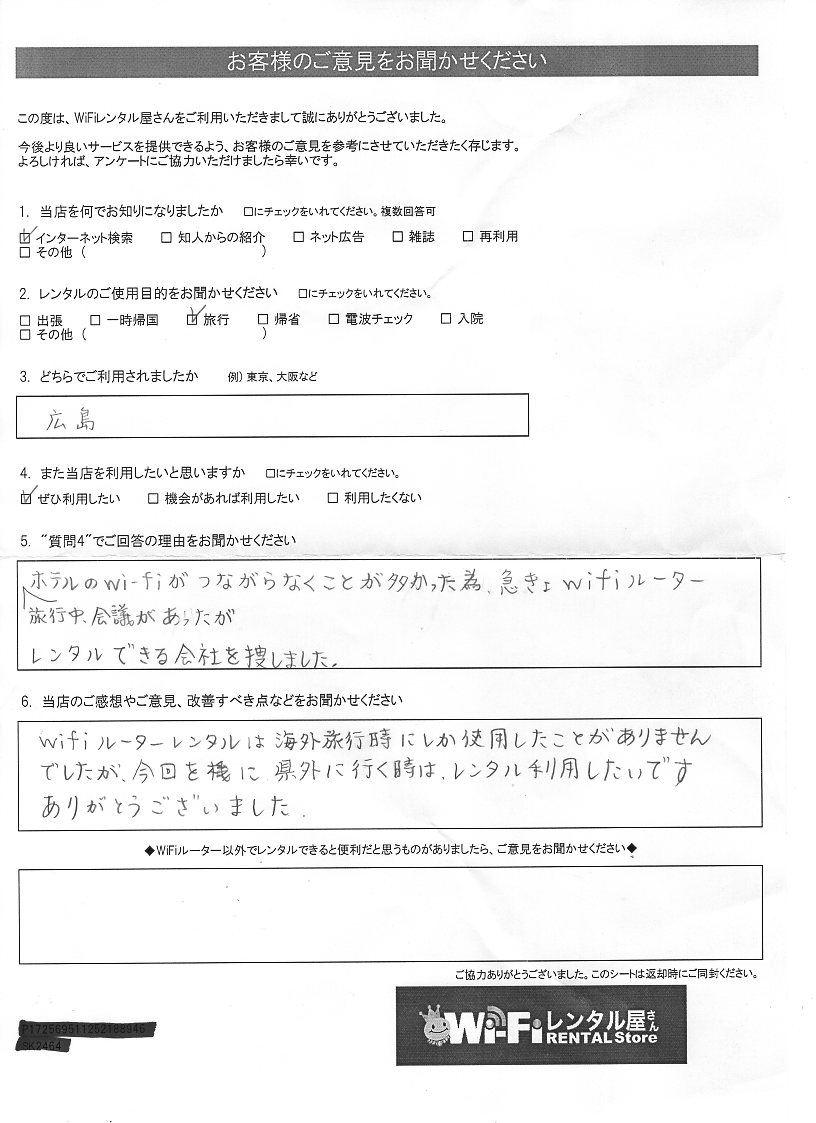 お客様のご意見をお聞かせください
この度は、WiFiレンタル屋さんをご利用いただきまして誠にありがとうございました。
今後より良いサービスを提供できるよう、お客様のご意見を参考にさせていただきたく存じます。
よろしければ、アンケートにご協力いただけましたら幸いです。
1. 当店を何でお知りになりましたか □にチェックをいれてください。複数回答可
☑インターネット検索 □ 知人からの紹介 □ ネット広告 □ 雑誌 □ 再利用
□ その他 ( )
2. レンタルのご使用目的をお聞かせください □にチェックをいれてください。
□ 出張 □ 一時帰国 ☑ 旅行 □ 帰省 □ 電波チェック □ 入院
□ その他 ( )
3. どちらでご利用されましたか 例) 東京、大阪など
広島
4. また当店を利用したいと思いますか □にチェックをいれてください。
☑ ぜひ利用したい □ 機会があれば利用したい □ 利用したくない
5. "質問4"でご回答の理由をお聞かせください
ホテルのwi-fiがつながらなくことが多かった為、急きょwifiルーター
旅行中、会議があったが
レンタルできる会社を捜しました。
6. 当店のご感想やご意見、改善すべき点などをお聞かせください
wifiルーターレンタルは海外旅行時にしか使用したことがありません
でしたが、今回を機に県外に行く時は、レンタル利用したいです
ありがとうございました。
◆WiFiルーター以外でレンタルできると便利だと思うものがありましたら、ご意見をお聞かせください◆
ご協力ありがとうございました。このシートは返却時にご同封ください。
P172569511252188946
SK2464
Wi-Fiレンタル屋さん
RENTAL Store